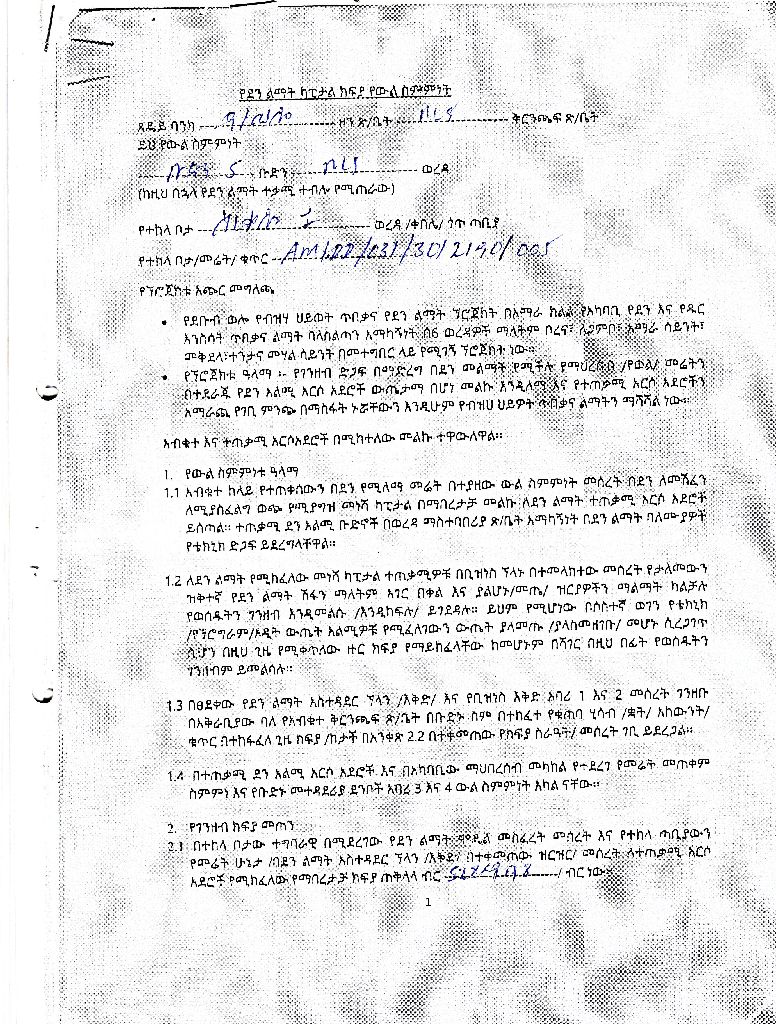 የደን ልማት ካፒታል ክፍያ የውል ስምምነት
ጸደይ ባንክ ዞን ጽ/ቤት ቅርንጫፍ ጽ/ቤት
ይህ የውል ስምምነት
ቡድን ወረዳ
(ከዚህ በኋላ የደን ልማት ተቃሚ ተብሎ የሚጠራው)
የተከላ ቦታ ወረዳ /ቀበሌ/ ጎጥ ጣቢያ
የተከላ ቦታ/መሬት/ ቁጥር
የፕሮጀክቱ አጭር መግለጫ
• የደቡብ ወሎ የብዝሃ ህይወት ጥበቃና የደን ልማት ፕሮጀክት በአማራ ክልል የአካባቢ የደን እና የዱር
እንስሳት ጥበቃና ልማት ባለስልጣን አማካኝነት በ6 ወረዳዎች ማለትም ቦረና፣ ሌጋምቦ፣ አማራ ሳይንት፣
መቅደላ፣ተንታና መሃል ሳይንት በመተግበር ላይ የሚገኝ ፕሮጀክት ነው።
• የፕሮጀክቱ ዓላማ ፡- የገንዘብ ድጋፍ በማድረግ በደን መልማት የሚችሉ የማህረሰብ /የወል/ መሬትን
በተደራጁ የደን አልሚ አርሶ አደሮች ውጤታማ በሆነ መልኩ እንዲለማ እና የተጠቃሚ አርሶ አደሮችን
አማራጪ የገቢ ምንጭ በማስፋት ኑሯቸውን እንዲሁም የብዝሀ ህይዎት ጥበቃና ልማትን ማሻሻል ነው።
አብቁተ እና ተጠቃሚ አርሶአደሮች በሚከተለው መልኩ ተዋውለዋል።
1. የውል ስምምነቱ ዓላማ
1.1 አብቁተ ከላይ የተጠቀሰውን በደን የሚለማ መሬት በተያዘው ውል ስምምነት መሰረት በደን ለመሸፈን
ለሚያስፈልግ ወጭ የሚያግዝ መነሻ ካፒታል በማበረታቻ መልኩ ለደን ልማት ተጠቃሚ አርሶ አደሮች
ይሰጣል። ተጠቃሚ ደን አልሚ ቡድኖች በወረዳ ማስተባበሪያ ጽ/ቤት አማካኝነት በደን ልማት ባለሙያዎች
የቴክኒክ ድጋፍ ይደረግላቸዋል።
1.2 ለደን ልማት የሚከፈለው መነሻ ካፒታል ተጠቃሚዎቹ በቢዝነስ ፕላኑ በተመላከተው መሰረት የታለመውን
ዝቅተኛ የደን ልማት ሽፋን ማለትም አገር በቀል እና ያልሆኑ/መጤ/ ዝርያዎችን ማልማት ካልቻሉ
የወሰዱትን ገንዘብ እንዲመልሱ /እንዲከፍሉ/ ይገደዳሉ። ይህም የሚሆነው በሶስተኛ ወገን የቴክኒክ
/የፕሮግራም/ኦዲት ውጤት አልሚዎቹ የሚፈለገውን ውጤት ያላመጡ /ያላስመዘገቡ/ መሆኑ ሲረጋገጥ
ሲሆን በዚህ ጊዜ የሚቀጥለው ዙር ክፍያ የማይከፈላቸው ከመሆኑም በሻገር በዚህ በፊት የወሰዱትን
ገንዘብም ይመልሳሉ።
1.3 በፀደቀው የደን ልማት አስተዳደር ፕላን /እቅድ/ እና የቢዝነስ እቅድ አባሪ 1 እና 2 መሰረት ገንዘቡ
በአቅራቢያው ባለ የአብቁተ ቅርንጫፍ ጽ/ቤት በቡድኑ ስም በተከፈተ የቁጠባ ሂሳብ /ቋት/ አካውንት/
ቁጥር በተከፋፈለ ጊዜ ክፍያ /ከታች በአንቀጽ 2.2 በተቀመጠው የክፍያ ስራዓት/ መሰረት ገቢ ይደረጋል።
1.4 በተጠቃሚ ደን አልሚ አርሶ አደሮች እና በአካባቢው ማህበረሰብ መካከል የተደረገ የመሬት መጠቀም
ስምምነ እና የቡድኑ መተዳደሪያ ደንቦች አባሪ 3 እና 4 ውል ስምምነት አካል ናቸው።
2. የገንዘብ ክፍያ መጠን
2.1 በተከላ ቦታው ተግባራዊ በሚደረገው የደን ልማት ሞዴል መስፈረት መሰረት እና የተከላ ጣቢያውን
የመሬት ሁኔታ /በደን ልማት አስተዳደር ፕላን /እቅድ/ በተቀመጠው ዝርዝር/ መሰረት ለተጠቃሚ አርሶ
አደሮች የሚከፈለው የማበረታቻ ክፍያ ጠቅላላ ብር / ብር ነው
1